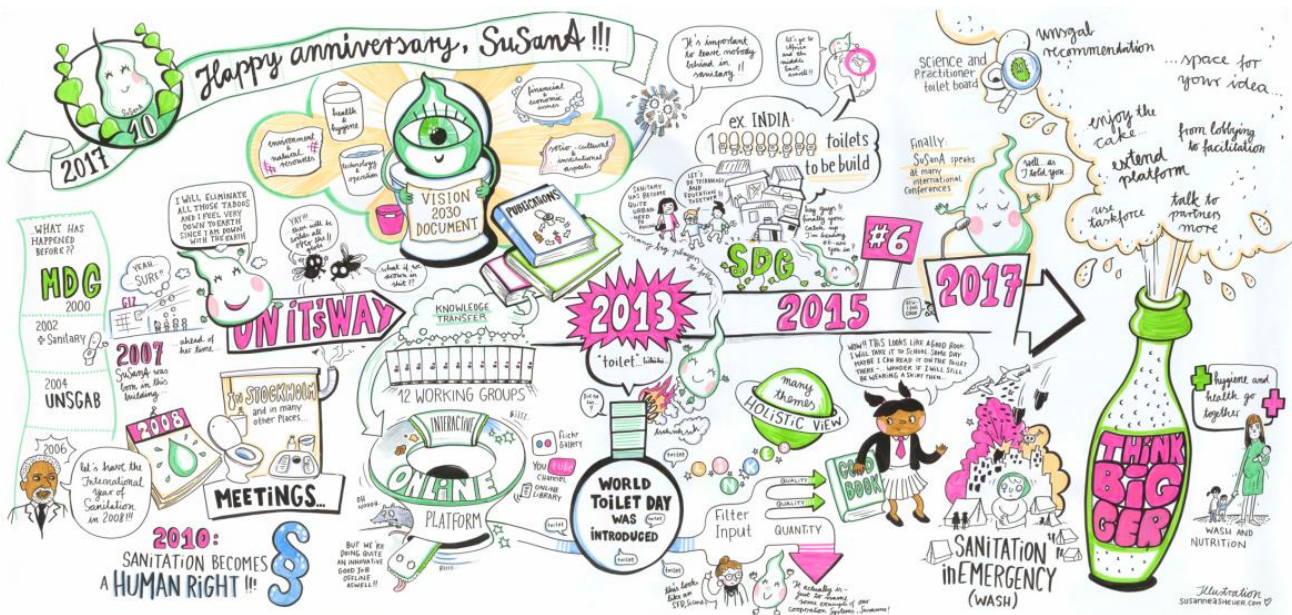 Happy anniversary, SuSanA !!!
SuSanA
10
2017
...WHAT HAS
HAPPENED
BEFORE??
MDG
2000
2002
+ Sanitary
2004
UNSGAB
2006
let's have the
International
Year of
Sanitation
in 2008!!!
I WILL ELIMINATE
ALL THOSE TABOOS
AND I FEEL VERY
DOWN TO EARTH
SINCE I AM DOWN
WITH THE EARTH
YEAH...
SURE!!
GIZ
ahead of
her time...
2007
SuSanA was
born in this
building
2008
to STOCKHOLM
and in many
other Places...
MEETINGS...
2010:
SANITATION BECOMES
A HUMAN RIGHT !!!
§
YAY!!
there will be
toilets all
over the
what if we
drown in
shit !?
ON IT'S WAY
environment
&
natural
resources
health
&
hygiene
technology
&
operation
financial
&
economic
issues
socio-cultural
institutional
aspects
VISION
2030
DOCUMENT
PUBLICATIONS
KNOWLEDGE
TRANSFER
12 WORKING GROUPS
INTERACTIVE
ONLINE
PLATFORM
BZZZ...
flickr
Gallery
You Tube
Channel
ONLINE
LIBRARY
OH
NOOO
BUT WE'RE
DOING QUITE
AN INNOVATIVE
GOOD JOB
OFFLINE
ASWELL!!
BZZZ...
2013
"toilet"... hihihi
WORLD
TOILET DAY
WAS
INTRODUCED
toilet
toilet
toilet
toilet
toilet
toilet
It's important
to leave nobody
behind in
sanitary!!
let's go to
Africa
and the
middle
East
aswell!!
ex INDIA
toilets
to be build
SANITARY
HAS BECOME
QUITE
URBAN
LET'S
DO TECHNOLOGY
AND
EDUCATION
TOGETHER!
many big players to follow
hey guys!!
finally you
catch up.
I'm heading
#6 - are
you in
SDG
#6
2015
2017
many
themes
HOLISTIC VIEW
WOW!! THIS LOOKS LIKE A GOOD BOOK.
I WILL TAKE IT TO SCHOOL SOME DAY
MAYBE I CAN READ IT ON THE TOILET
THERE... WONDER IF I WILL STILL
BE WEARING A SKIRT THEN...
GOOD
BOOK
QUALITY
QUALITY
QUANTITY
Filter
Input
this look
like an
SFD, Susana!
It actually is -
just to many
some example of our
Cooperation Systems, Susanna!
SANITATION
in EMERGENCY
(WASH)
SCIENCE and
Practitioner
toilet board
Finally:
SuSanA speaks
at many
international
Conferences
well.. as
I told you
unusual
recommendation
...space for
your idea...
...enjoy the
cake...
from lobbying
to facilitation
extend
platform
use
taskforce
talk to
partners
more
THINK
BIG
GER
hygiene and
health go
together
WASH AND
NUTRITION
Illustration
SUSANNEASHEUER.COM